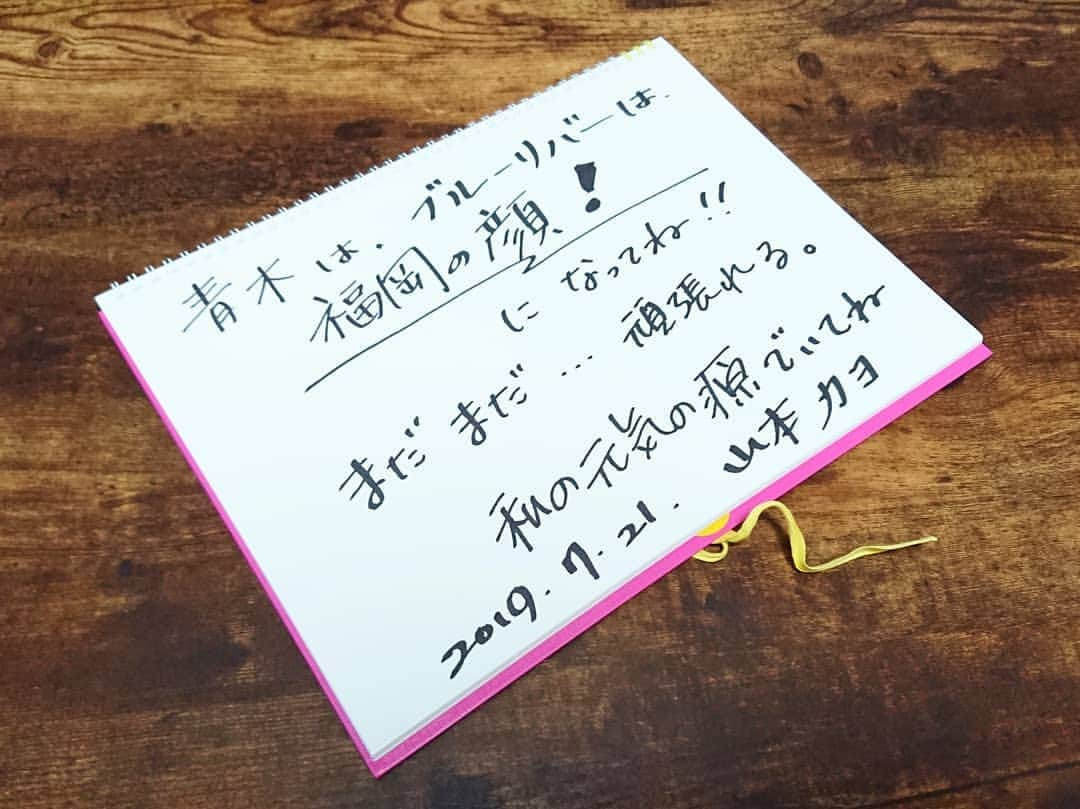 青木は、ブルーリバーは、
福岡の顔!
になってね!!
まだまだ…頑張れる。
私の元気の源でいてね
2019.7.21. 山本カヨ